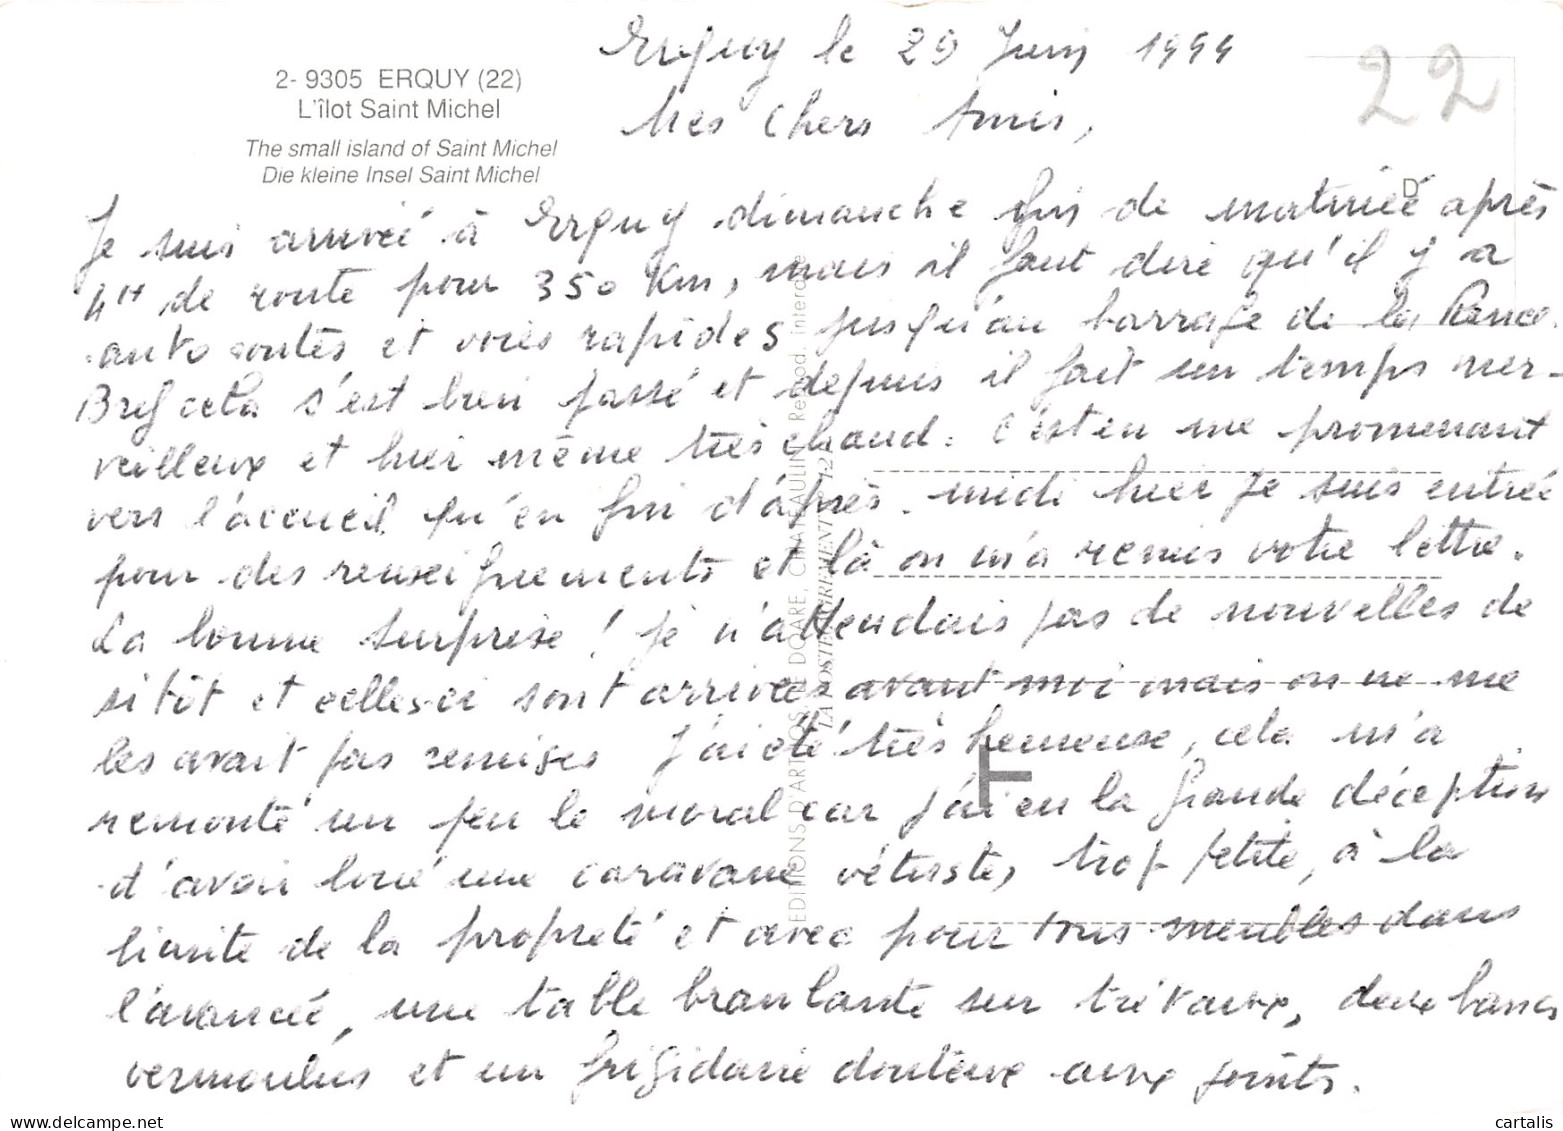 Erquy le 29 Juin 1999
22
2- 9305 ERQUY (22)
L'îlot Saint Michel
The small island of Saint Michel
Die kleine Insel Saint Michel
Mes chers Amis,
D
Je suis arrivée à Erquy dimanche fin de matinée après
4H de route pour 350 Km, mais il faut dire qu'il y a
autoroutes et voies rapides jusqu'au barrage de la Rance.
Bref cela s'est bien passé et depuis il fait un temps mer-
veilleux et hier même très chaud. C'est en me promenant
vers l'accueil qu'en fin d'après-midi hier je suis entrée
pour des renseignements et là on m'a remis votre lettre.
La bonne surprise ! je n'attendais pas de nouvelles de
sitôt et celles-ci sont arrivées avant moi mais on ne me
les avait pas remises J'ai été très heureuse, cela m'a
remonté un peu le moral car j'ai eu la grande déception
d'avoir loué une caravane vétuste, trop petite, à la
limite de la propreté et avec pour tous meubles dans
l'avancée, une table branlante sur trétaux, deux bancs
vermoulus et un frigidaire douteux aux joints.
EDITIONS D'ART JOS LE DOARE, CHATEAULIN Reprod. interdite
LA POSTE AGREMENT N° 12
cartalis
www.delcampe.net